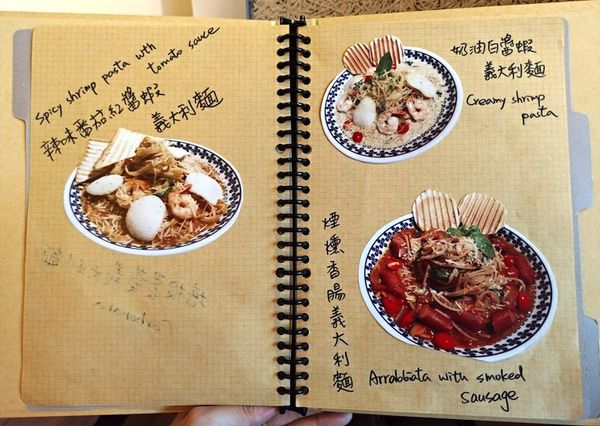 Spicy shrimp pasta wth
tomato sauce
辣味番茄紅醬蝦
義大利麵
Carbonara
奶油白醬蝦
義大利麵
Creamy shrimp
pasta
煙燻香腸義大利麵
Arrabbiata with smoked
Sausage